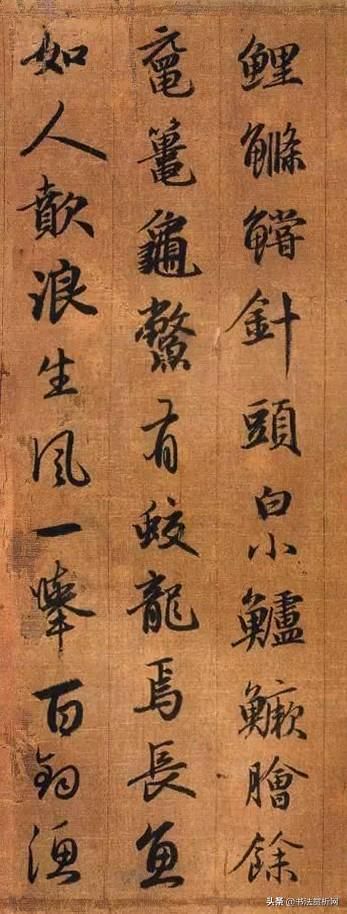 鯉鰷鱨針頭白小鱸鱖膾餘
黿鼉龜鱉有蛟龍焉長魚
如人歕浪生風一舉百鈞漁
头条 @书法赏析网